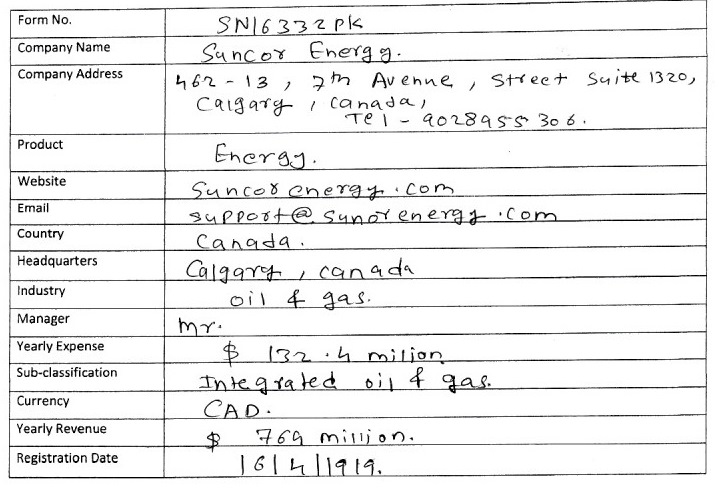 Form No. SN16332PK
Company Name Suncor Energy.
Company Address 462-13, 7th Avenue, Street Suite 1320,
Calgary, Canada,
Tel - 9028955306.
Product Energy.
Website Suncorenergy.com
Email support@sunorenergy.com
Country Canada.
Headquarters Calgary, Canada
Industry oil & gas.
Manager Mr.
Yearly Expense $ 132.4 milion
Sub-classification Integrated oil & gas.
Currency CAD.
Yearly Revenue $ 769 million.
Registration Date 16/4/1919.